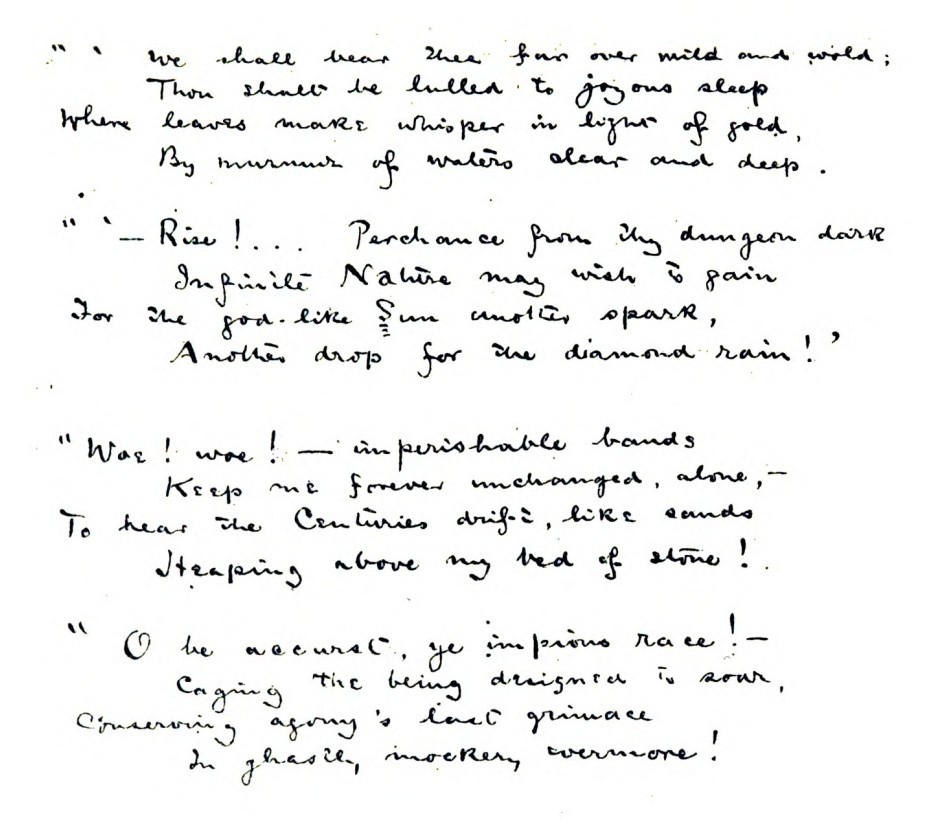 " ' We shall bear thee far over mild and wild;
Thou shalt be lulled to joyous sleep
Where leaves make whisper in light of gold,
By murmur of waters clear and deep.
" ' — Rise!... Perchance from thy dungeon dark
Infinite Nature may wish to gain
For the god-like Sun another spark,
Another drop for the diamond rain!'
"Woe! woe! — imperishable bands
Keep me forever unchanged, alone, —
To hear the Centuries drift, like sands
Heaping above my bed of stone!
" O be accurst, ye impious race! —
Caging the being designed to soar,
Conserving agony's last grimace
In ghastly mockery evermore!